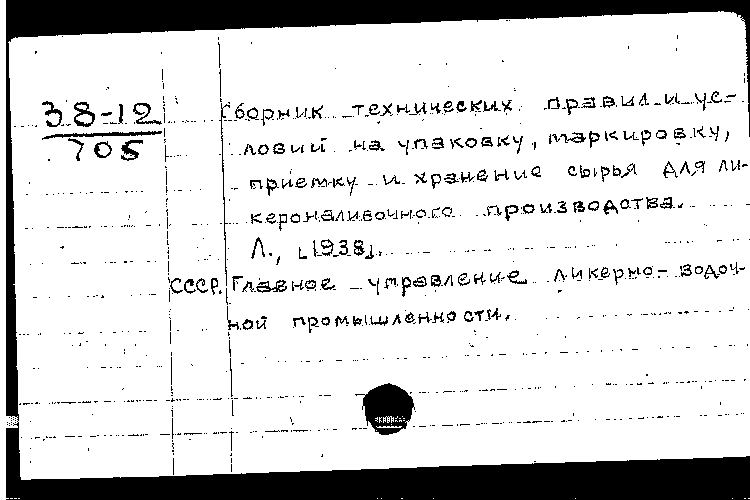 38-12
705
Сборник технических правил и ус-
ловий на упаковку, маркировку,
приемку и хранение сырья для ли-
кероналивочного производства.
Л., [1938].
СССР. Главное управление ликерно-водоч-
ной промышленности.